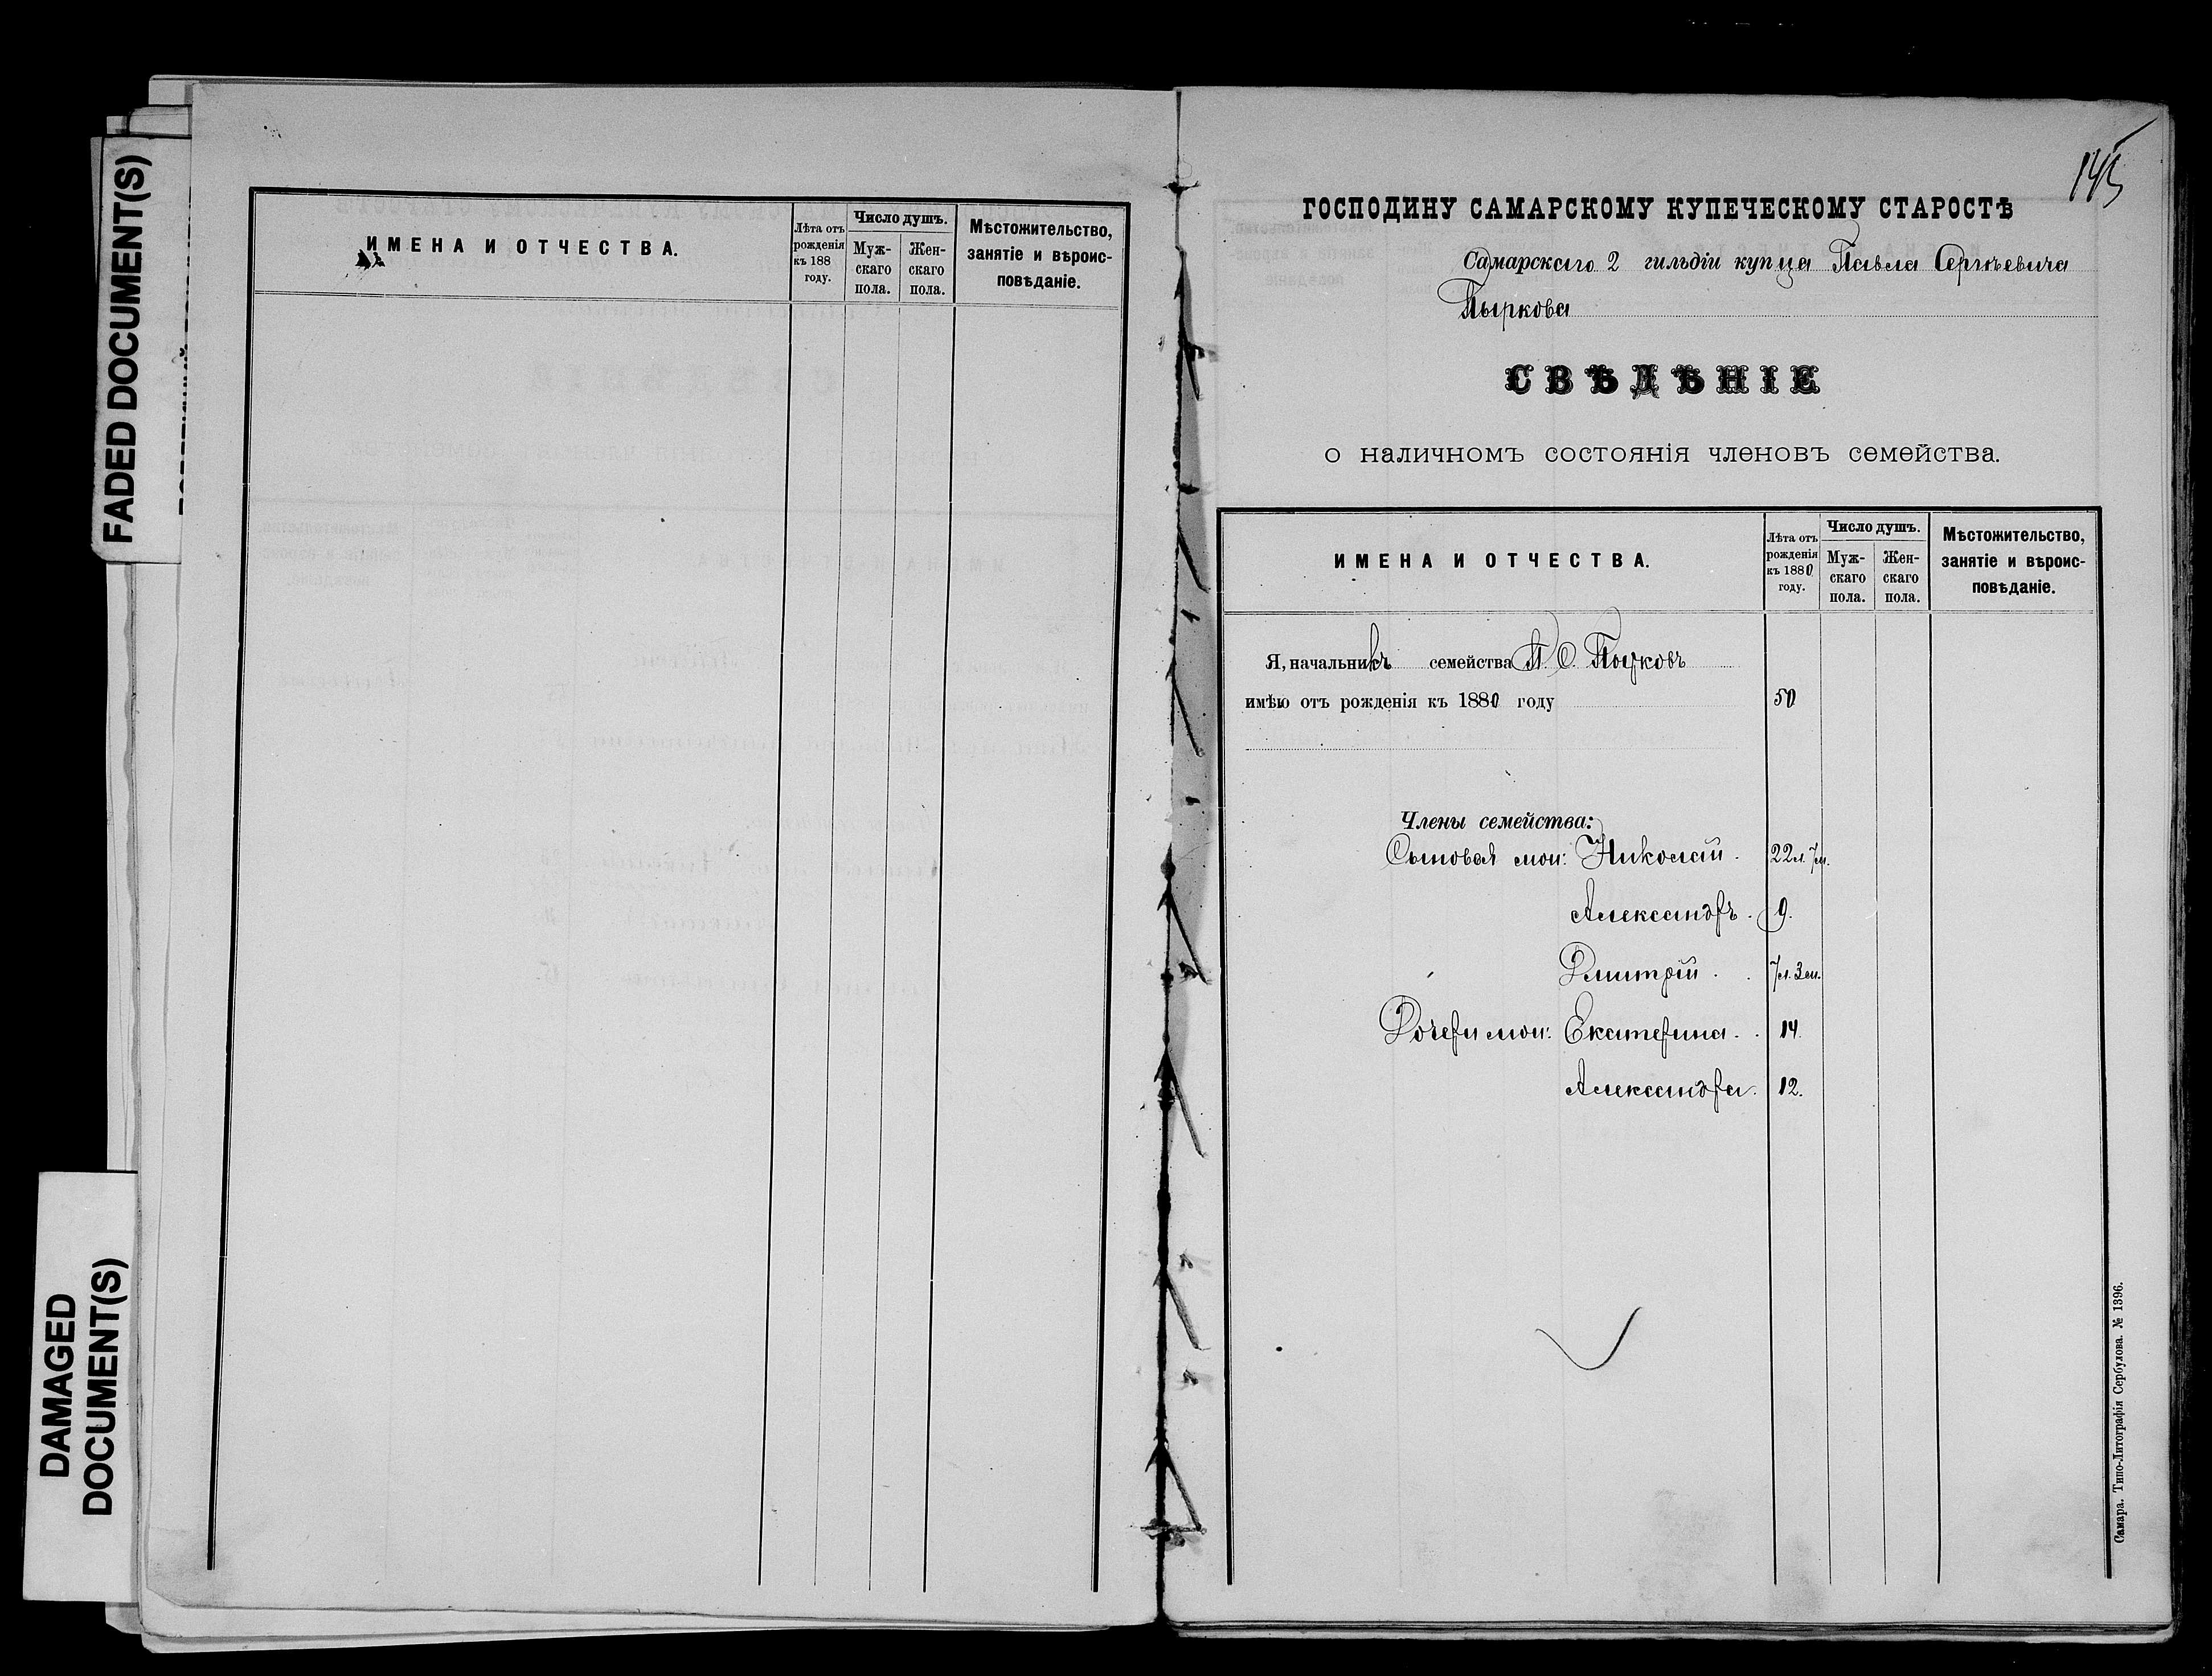 FADED DOCUMENT(S)
DAMAGED
DOCUMENT(S)
ИМЕНА И ОТЧЕСТВА.
Лѣта отъ
рожденія
къ 188
году.
Число душъ.
Муж-
скаго
пола.
Жен-
скаго
пола.
Мѣстожительство,
занятіе и вѣроис-
повѣданіе.
145
ГОСПОДИНУ САМАРСКОМУ КУПЕЧЕСКОМУ СТАРОСТѢ
Самарскаго 2 гильдіи купца Павла Сергѣевича
Пыркова
СВѢДѢНІЕ
о наличномъ состоянія членовъ семейства.
ИМЕНА И ОТЧЕСТВА.
Лѣта отъ
рожденія
къ 1880
году.
Число душъ.
Муж-
скаго
пола.
Жен-
скаго
пола.
Мѣстожительство,
занятіе и вѣроис-
повѣданіе.
Я, начальникъ семейства П. С. Пырковъ
имѣю отъ рожденія къ 1880 году 50
Члены семейства:
Сыновья мои: Николай. 22 л. 7 м.
Александръ. 9.
Дмитрій. 7 л. 3 м.
Дочери мои: Екатерина. 14.
Александра. 12.
Самара. Типо-Литографія Сербулова. № 1396.